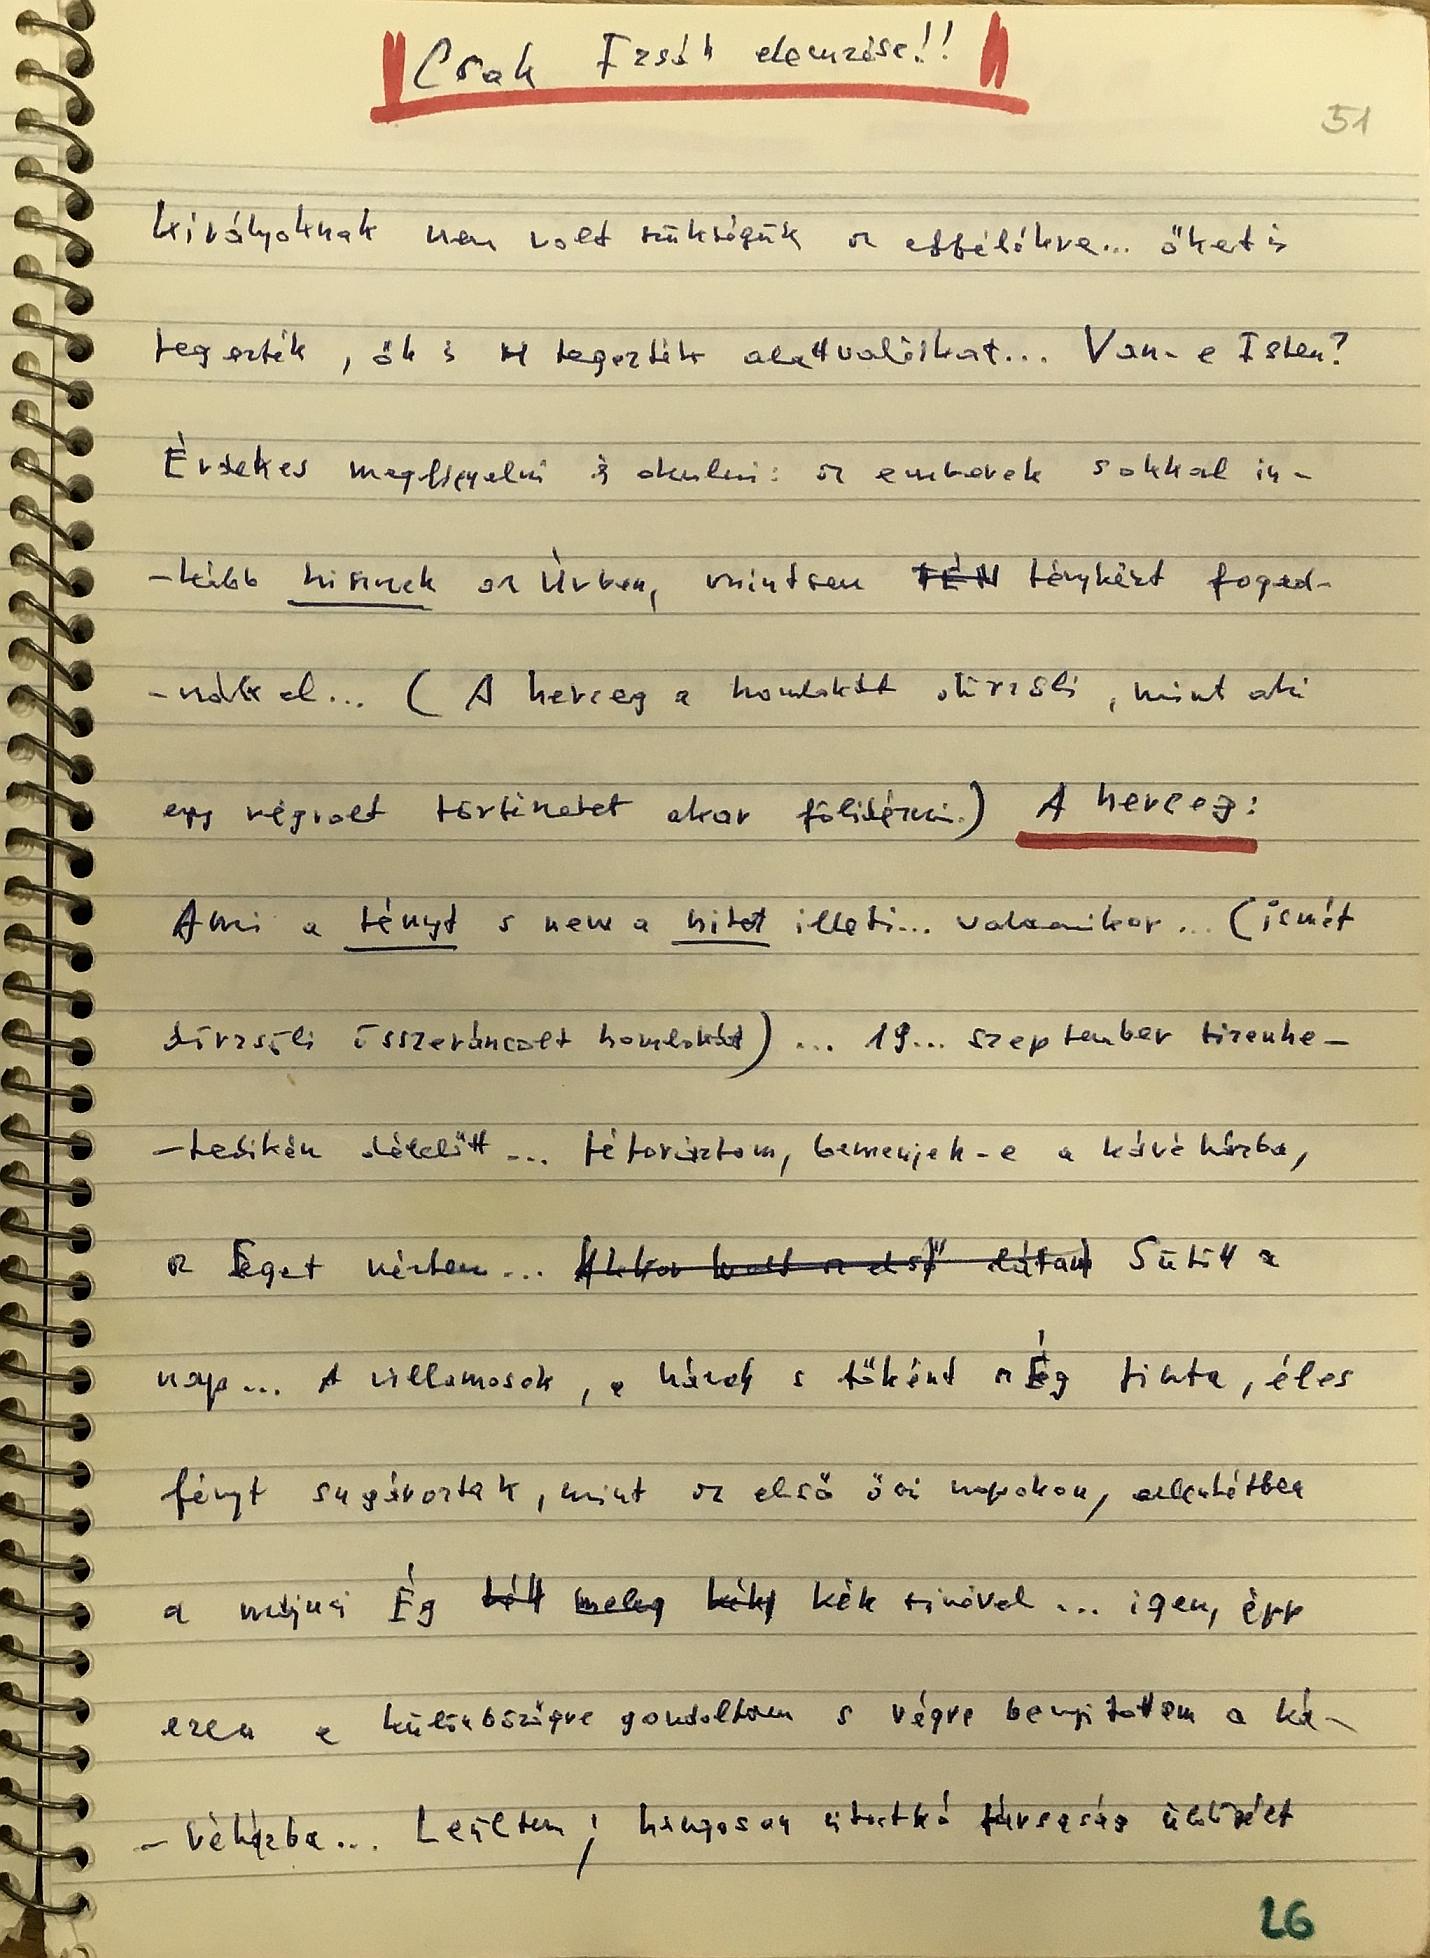 "Csak Izsák elemzése!!"
51
királyoknak nem volt szükségük az effélékre... őket is
tegezték, ők is tegezték alattvalóikat... Van-e Isten?
Érdekes megfigyelni s okulni: az emberek sokkal in-
-kább hisznek az Úrban, mintsem TÉN tényként fogad-
-nák el... (A herceg a homlokát dörzsöli, mint aki
egy régvolt történetet akar fölidézni.) A herceg:
Ami a tényt s nem a hitet illeti... valamikor... (ismét
dörzsöli összeráncolt homlokát)... 19... szeptember tizenhe-
-tedikén délelőtt... tétováztam, bemenjek-e a kávéházba,
az Eget néztem... Akkor volt az első látani Sütött a
nap... A villamosok, a házak s főként az Ég tiszta, éles
fényt sugároztak, mint az első őszi napokon, ellentétben
a májusi Ég meleg kék kék színével... igen, épp
ezen a különbözőségre gondoltam s végre benyitottam a ká-
-véházba... Leültem; hangosan vitatkozó társaság üldögélt
26